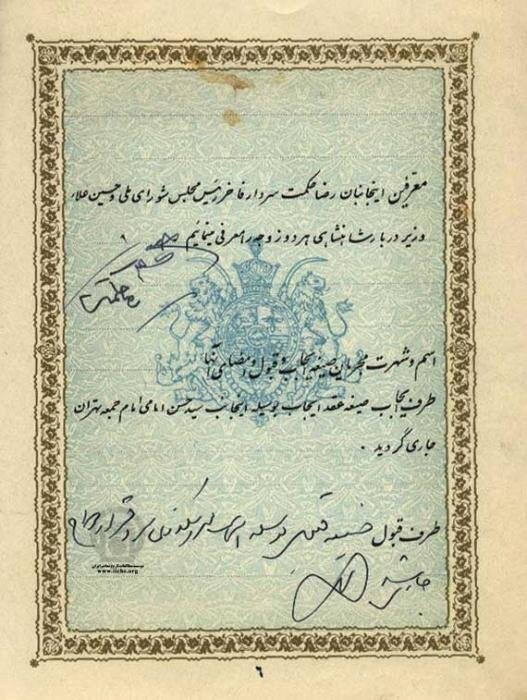 معرفین اینجانبان رضا حکمت سردار فاخر رئیس مجلس شورای ملی و حسین علاء
وزیر دربار شاهنشاهی هر دو زوجه را معرفی مینمائیم
اسم و شهرت مجریان صیغه ایجاب و قبول و امضای آنها
طرف ایجاب صیغه عقد ایجاب بوسیله اینجانب سید حسن امامی امام جمعه تهران
جاری گردید .
طرف قبول
موسسه مطالعات تاریخ معاصر ایران
www.iichs.org
۶